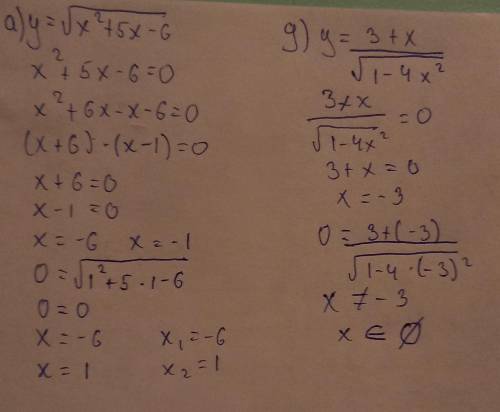 а) y = √(x²+5x-6)
x²+5x-6=0
x²+6x-x-6=0
(x+6)·(x-1)=0
x+6=0
x-1=0
x=-6 x=-1
0=√(1²+5·1-6)
0=0
x=-6 x₁=-6
x=1 x₂=1
g) y = (3+x)/√(1-4x²)
(3+x)/√(1-4x²) = 0
3+x=0
x=-3
0 = (3+(-3))/√(1-4·(-3)²)
x≠-3
x∈∅